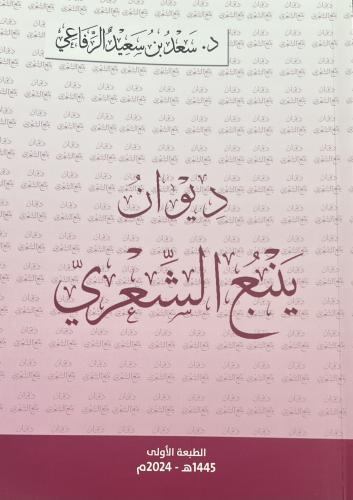 د. سَعْدُ بْنُ سَعِيْدٍ الرِّفَاعِي
دِيْوَانُ
يَنْبُعَ الشِّعْرِيّ
الطبعة الأولى
1445هـ - 2024م